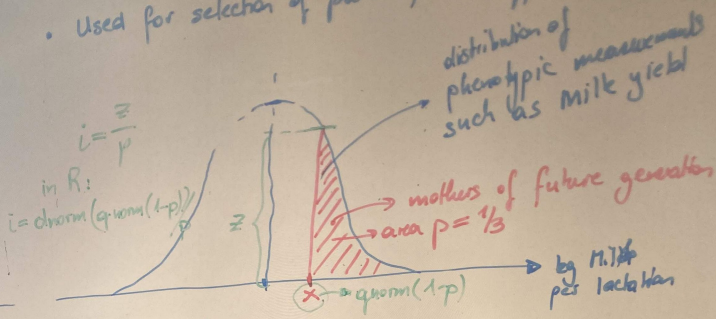 • Used for selection of
distribution of
phenotypic measurements
such as milk yield
i = z/p
in R:
i = dnorm(qnorm(1-p))/p
z
mothers of future generation
area p = 1/3
x
qnorm(1-p)
kg
per lactation